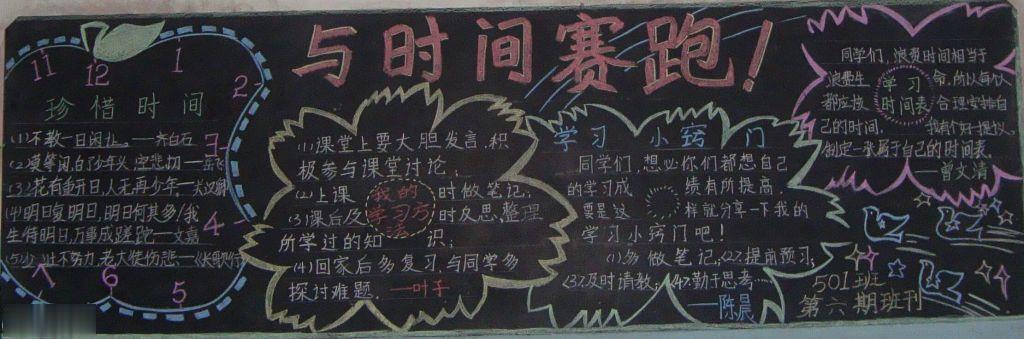 与时间赛跑！
11
12
1
2
3
4
5
6
7
珍惜时间
(1)不教一日闲过。——齐白石
(2)莫等闲,白了少年头,空悲切——岳飞
(3)花有重开日,人无再少年——
(4)明日复明日,明日何其多!我
生待明日,万事成蹉跎——文嘉
(5)少壮不努力,老大徒伤悲——《长歌行》
我的
学习方
法
(1)课堂上要大胆发言,积
极参与课堂讨论;
(2)上课 时做笔记;
(3)课后及 时反思,整理
所学过的知 识;
(4)回家后多复习,与同学多
探讨难题.——叶子
学习 小窍 门
同学们,想必你们都想自己
的学习成 绩有所提高.
要是这 样就分享一下我的
学习小窍门吧!
(1)多做笔记;(2)提前预习;
(3)及时请教;(4)勤于思考…
——陈晨
学习
时间表
同学们,浪费时间相当于
浪费生 命,所以每个
都应该 合理安排自
己的时间. 我有个好提议,
制定一张属于自己的时间表.
——曾文清
501班
第六期班刊